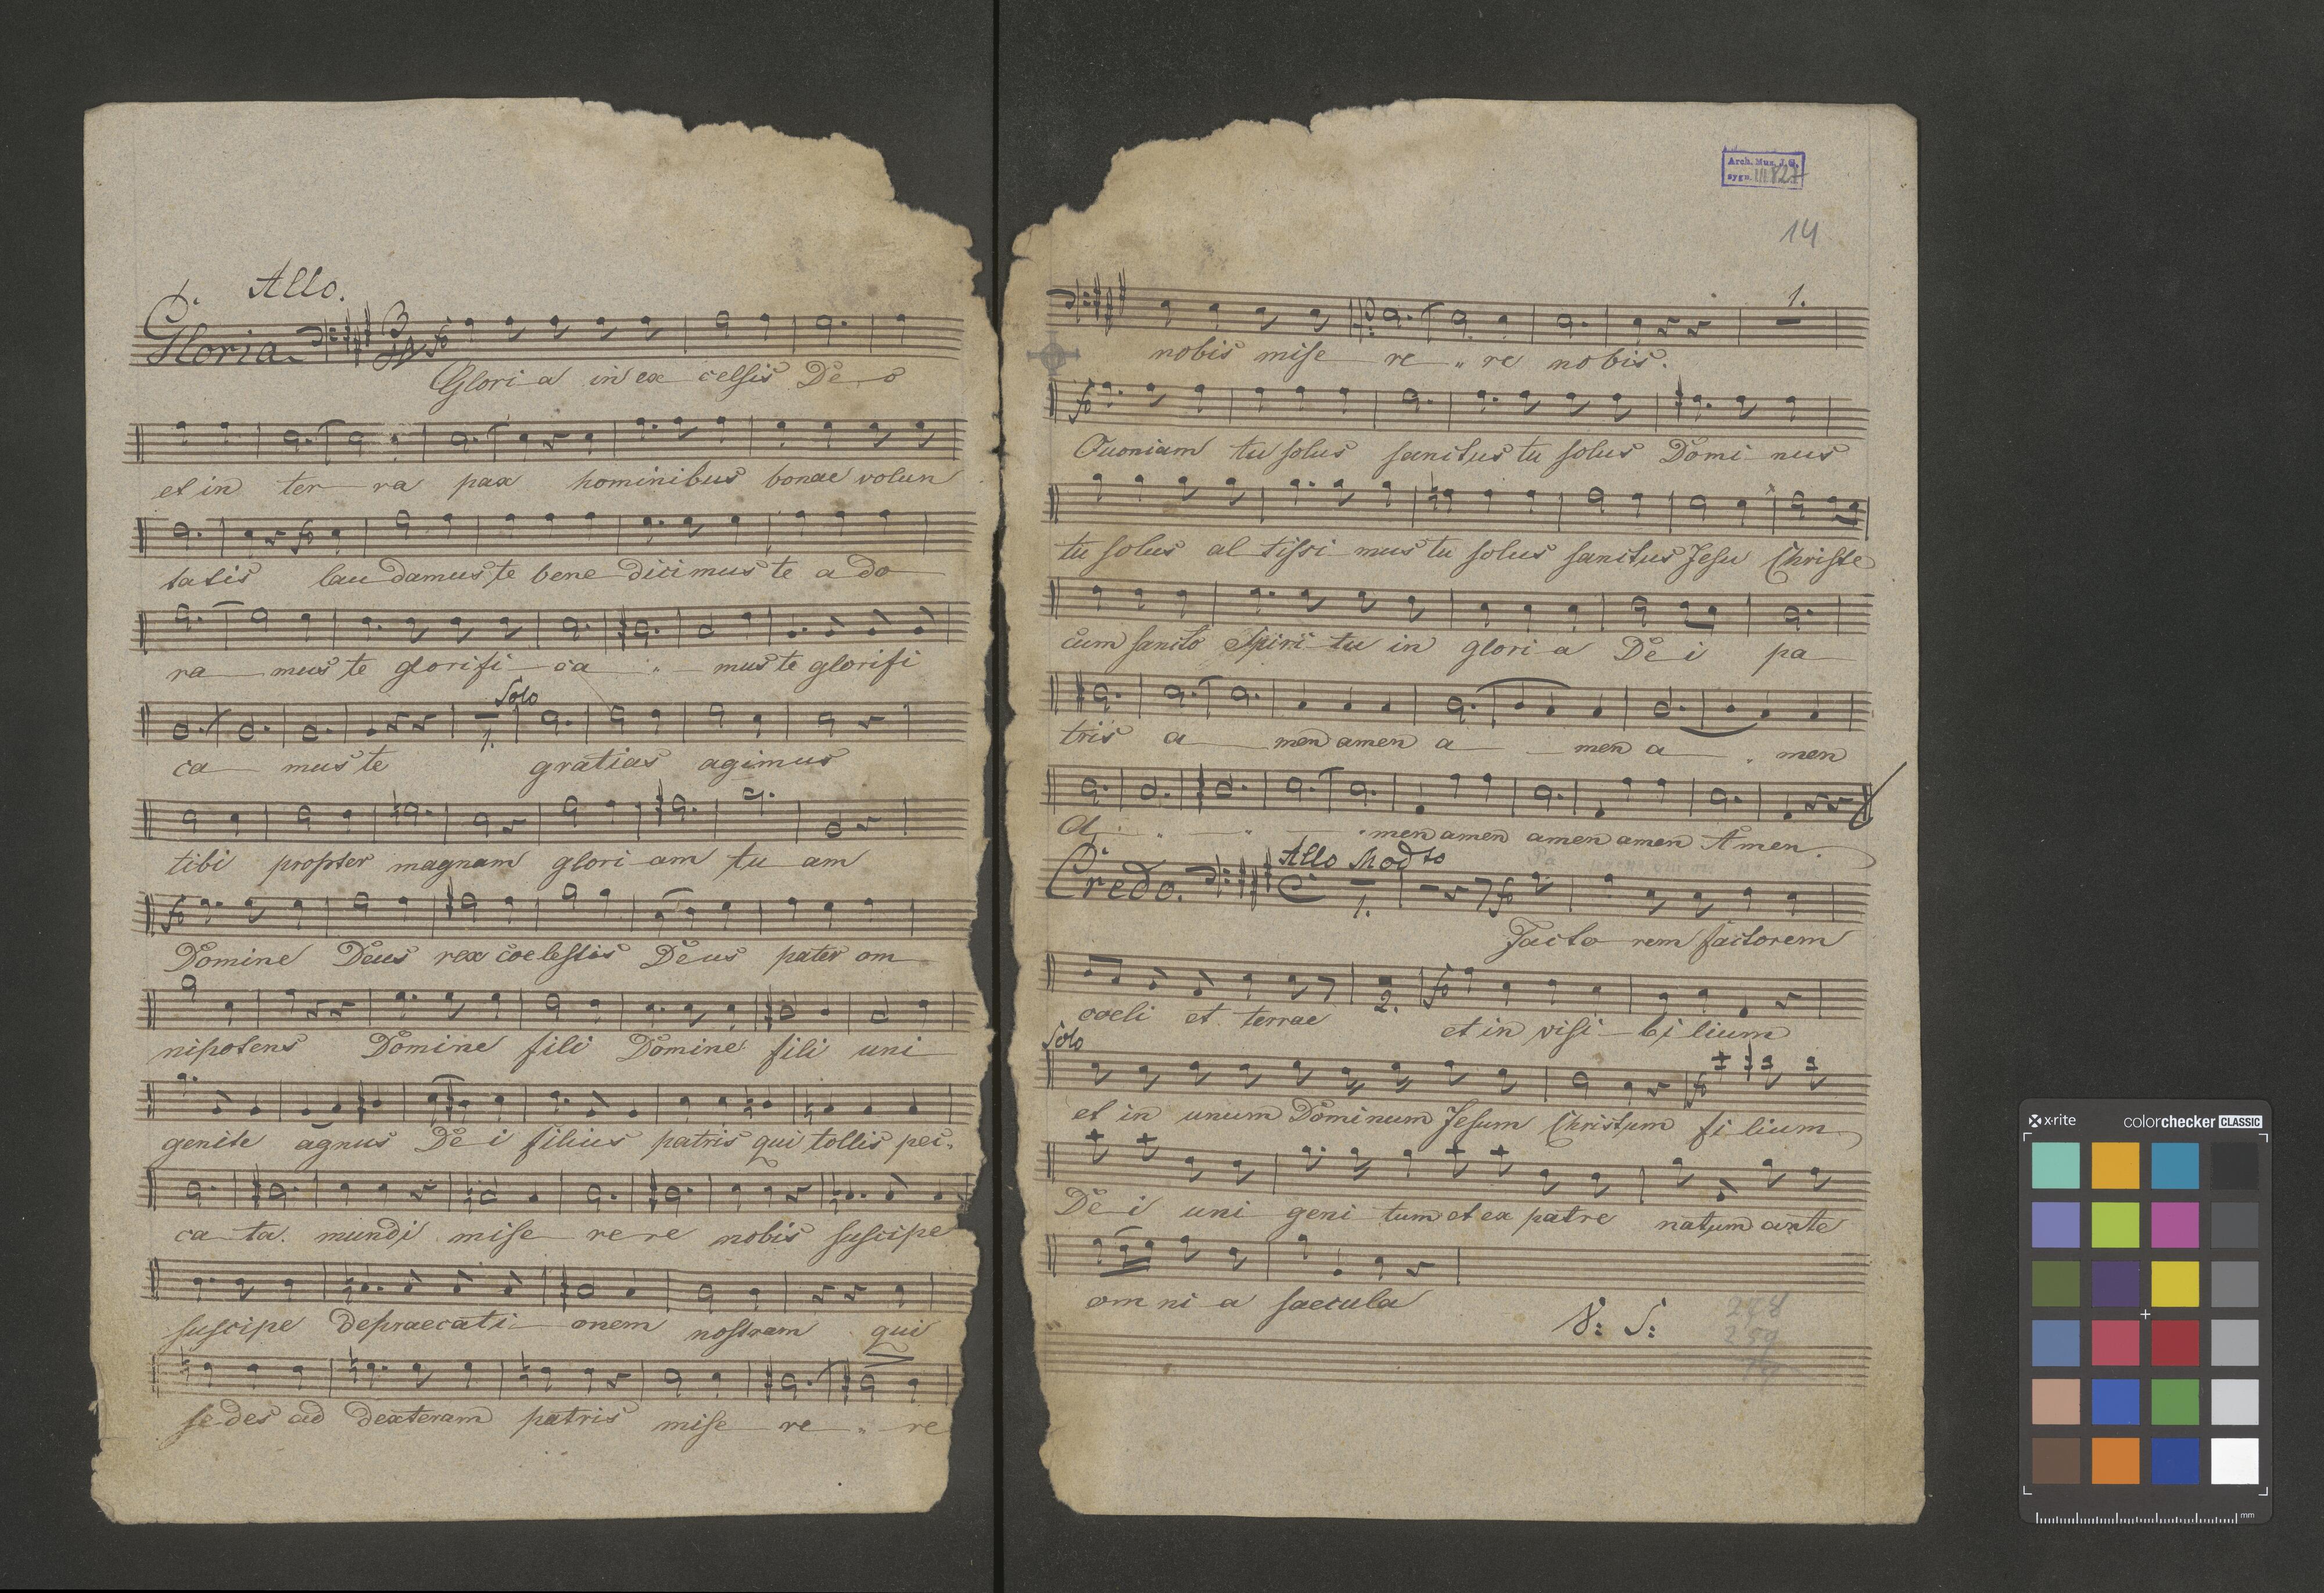 Allo.
Gloria
Glori a in ex celsis De o
et in ter ra pax hominibus bonae volun
tatis lau damus te bene dicimus te a do
ra mus te glorifi ca " mus te glorifi
Solo
1.
ca mus te gratias agimus
tibi propter magnam glori am tu am
fo
Domine Deus rex coelestis Deus pater om
nipotens Domine fili Domine fili uni
genite agnus De i filius patris qui tollis pec"
ca ta mundi mise re re nobis suscipe
suscipe depraecati onem nostram qui
se des ad dexteram patris mise re " re
Arch. Mus. J. G.
sygn. III 827
14
1.
nobis mise re " re nobis.
fo
Quoniam tu solus sanctus tu solus Domi nus
tu solus al tissi mus tu solus sanctus Jesu Christe
cum sancto Spiri tu in glori a De i pa
tris a men amen a men a " men
A " " " men amen amen amen Amen.
Allo Modto
Credo.
1.
fo
Facto rem factorem
2.
fo
coeli et terrae et in visi bi lium
Solo
fo
et in unum Dominum Jesum Christum fi lium
De i uni geni tum et ex patre natum ante
om ni a saecula
V: S:
x-rite colorchecker CLASSIC
mm